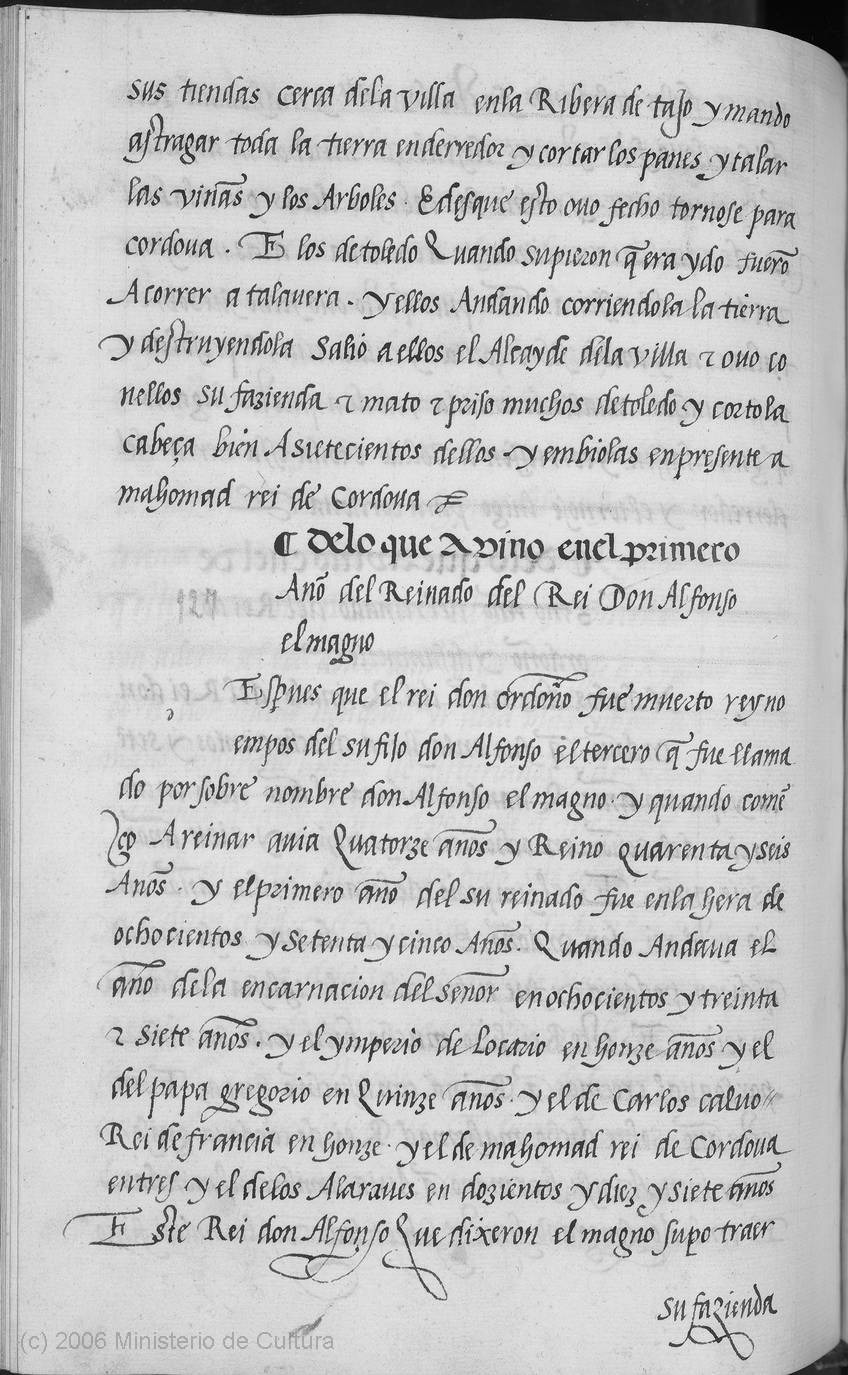 sus tiendas cerca dela villa enla Ribera de tajo y mando
astragar toda la tierra enderredor y cortar los panes y talar
las viñas y los Arboles. E desque esto ouo fecho tornose para
cordoua. E los de toledo Quando supieron q̃ era ydo fuerõ
A correr a talauera. y ellos Andando corriendola la tierra
y destruyendola Salio a ellos el Alcayde dela villa τ ouo co
nellos su fazienda τ mato τ priso muchos de toledo y corto la
cabeça bien A sietecientos dellos. y embiolas en presente a
mahomad rei de Cordoua
¶ Delo que Avino enel primero
Año del Reinado del Rei Don Alfonso
el magno
Espues que el rei don ordoño fue muerto reyno
empos del su fijo don Alfonso el tercero q̃ fue llama
do por sobre nombre don Alfonso el magno. y quando comẽ
ço A reinar auia Quatorze años y Reino quarenta y seis
Años. y el primero año del su reinado fue enla hera de
ochocientos y setenta y cinco Años. Quando Andaua el
año dela encarnacion del señor en ochocientos y treinta
τ siete años. y el ymperio de Locario en honze años y el
del papa gregorio en Quinze años. y el de Carlos caluo
Rei de francia en honze. y el de mahomad rei de Cordoua
en tres y el delos Alaraues en dozientos y diez y siete años
Este Rei don Alfonso Que dixeron el magno supo traer
su fazienda
(c) 2006 Ministerio de Cultura